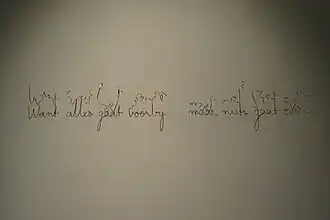 Want alles gaat voorby maar niets gaat over